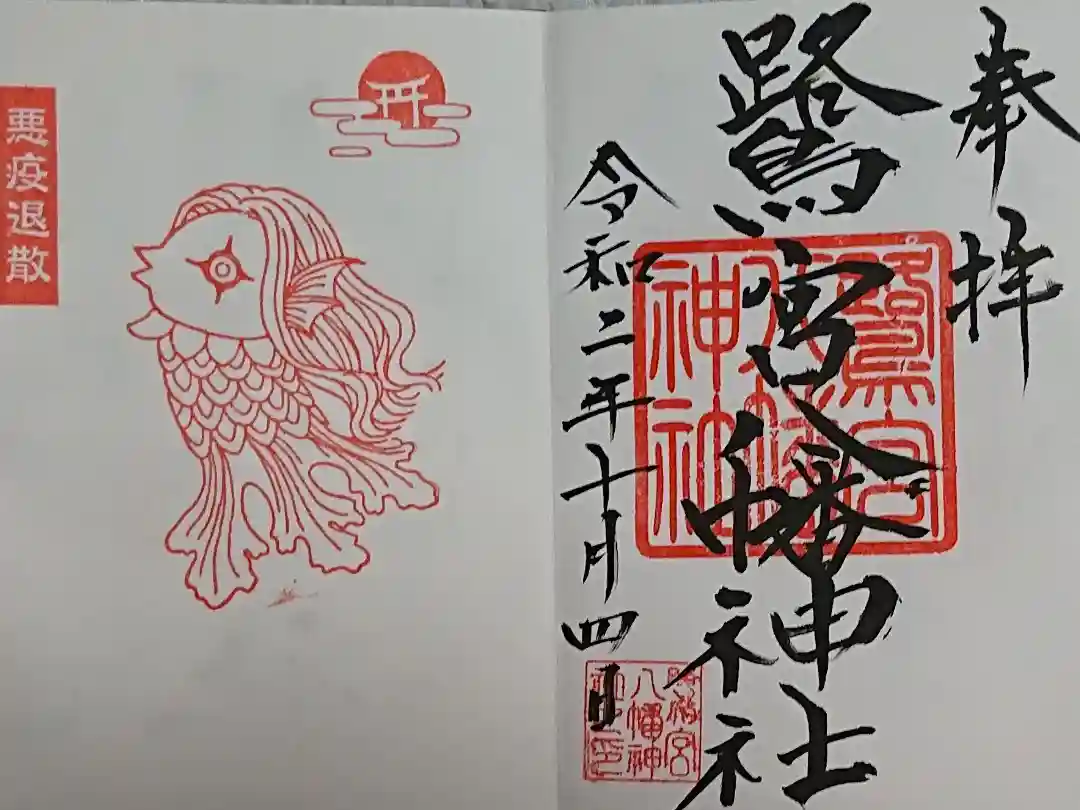 奉拝
鷺宮八幡神社
令和二年十月四日
鷺宮
八幡
神社
鷺宮
八幡神
社之印
悪疫退散